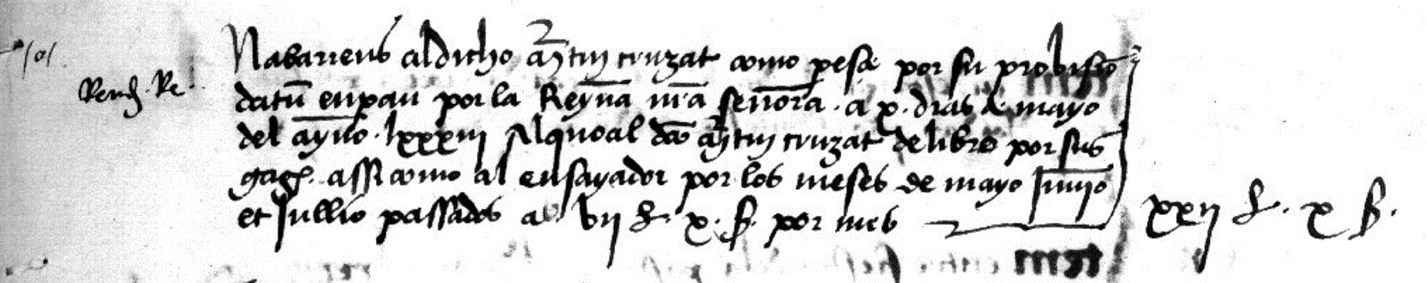 Nabarreus al dicho Martin cruzat como paresce por su probision
datum en pau por la Reyna n̄ra señora a x dias de mayo
del aynno lxxxiii Al quoal dito Martin cruzat delibre por sus
gages assi como al ensayador por los meses de mayo Junio
et Jullio passados a vii £. x. ß. por mes xxii £. x ß.